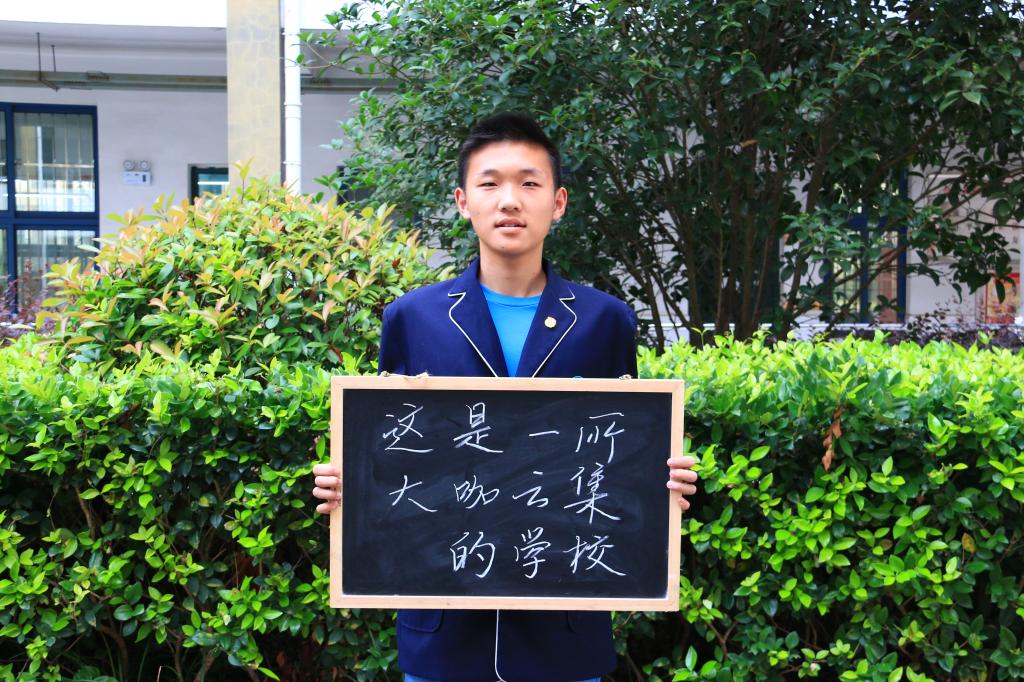 这是一所
大咖云集
的学校